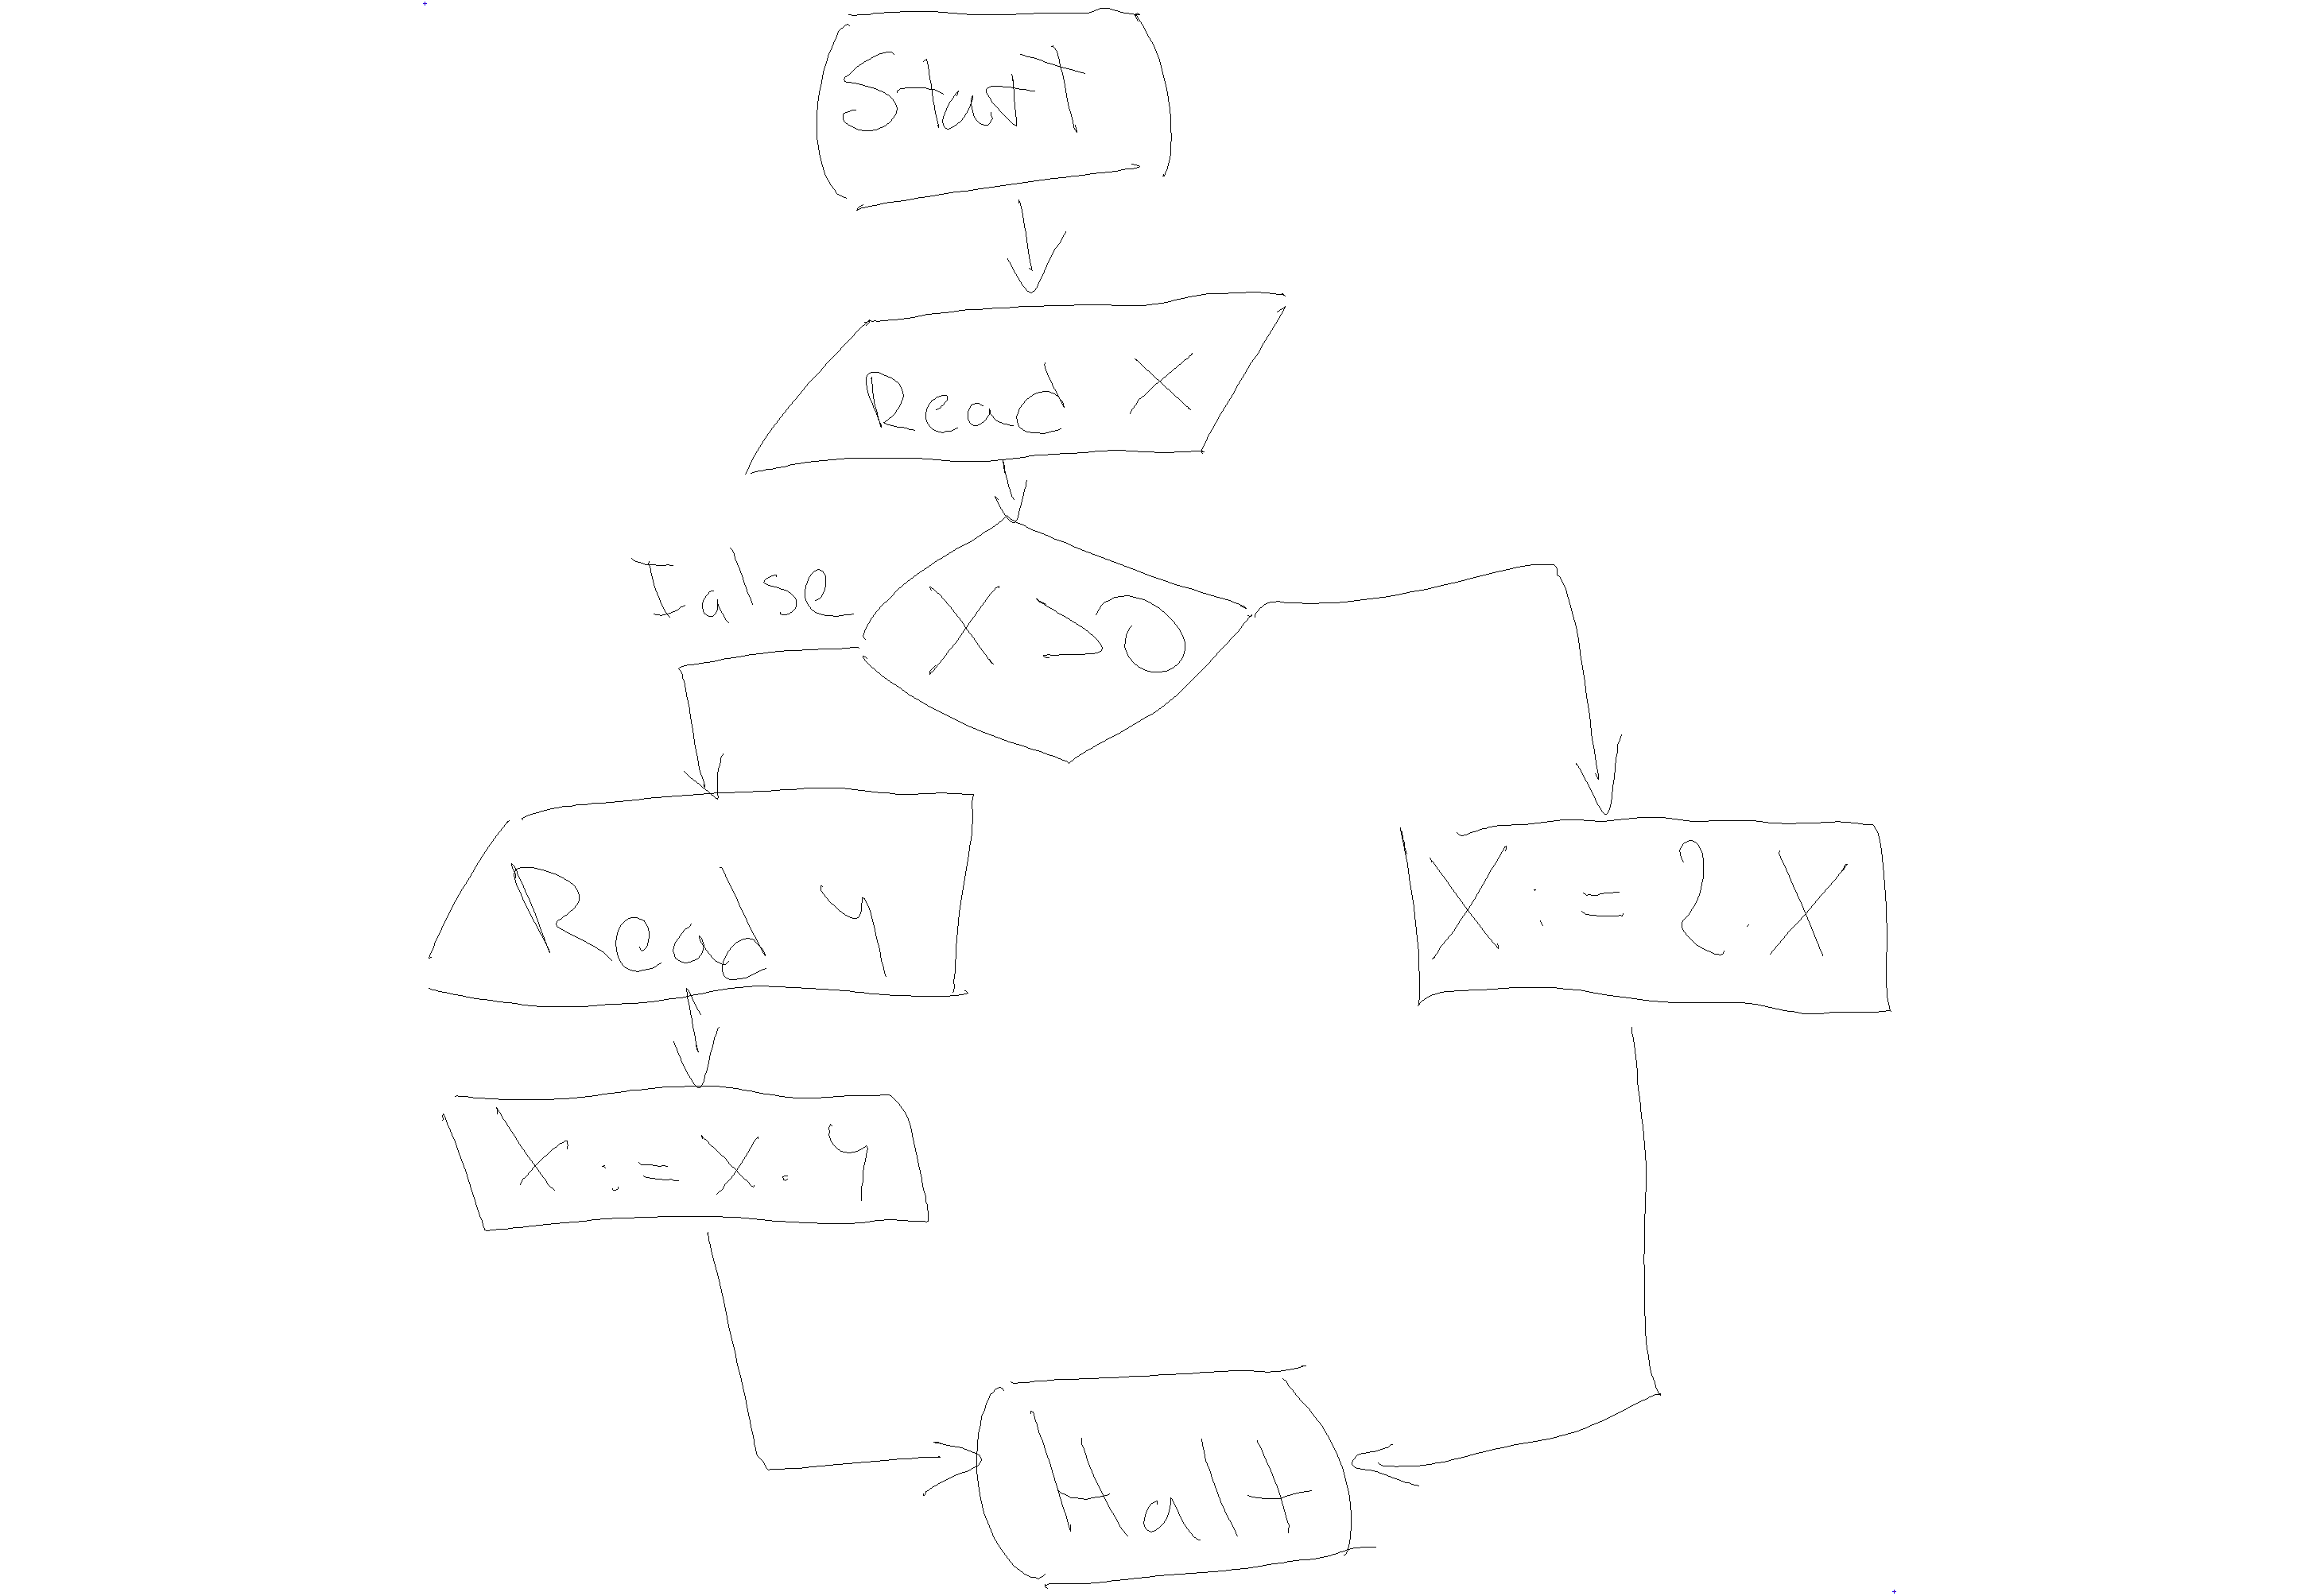 Start
Read X
False
X > 0
Read y
X := 2 . X
X := X . y
Halt